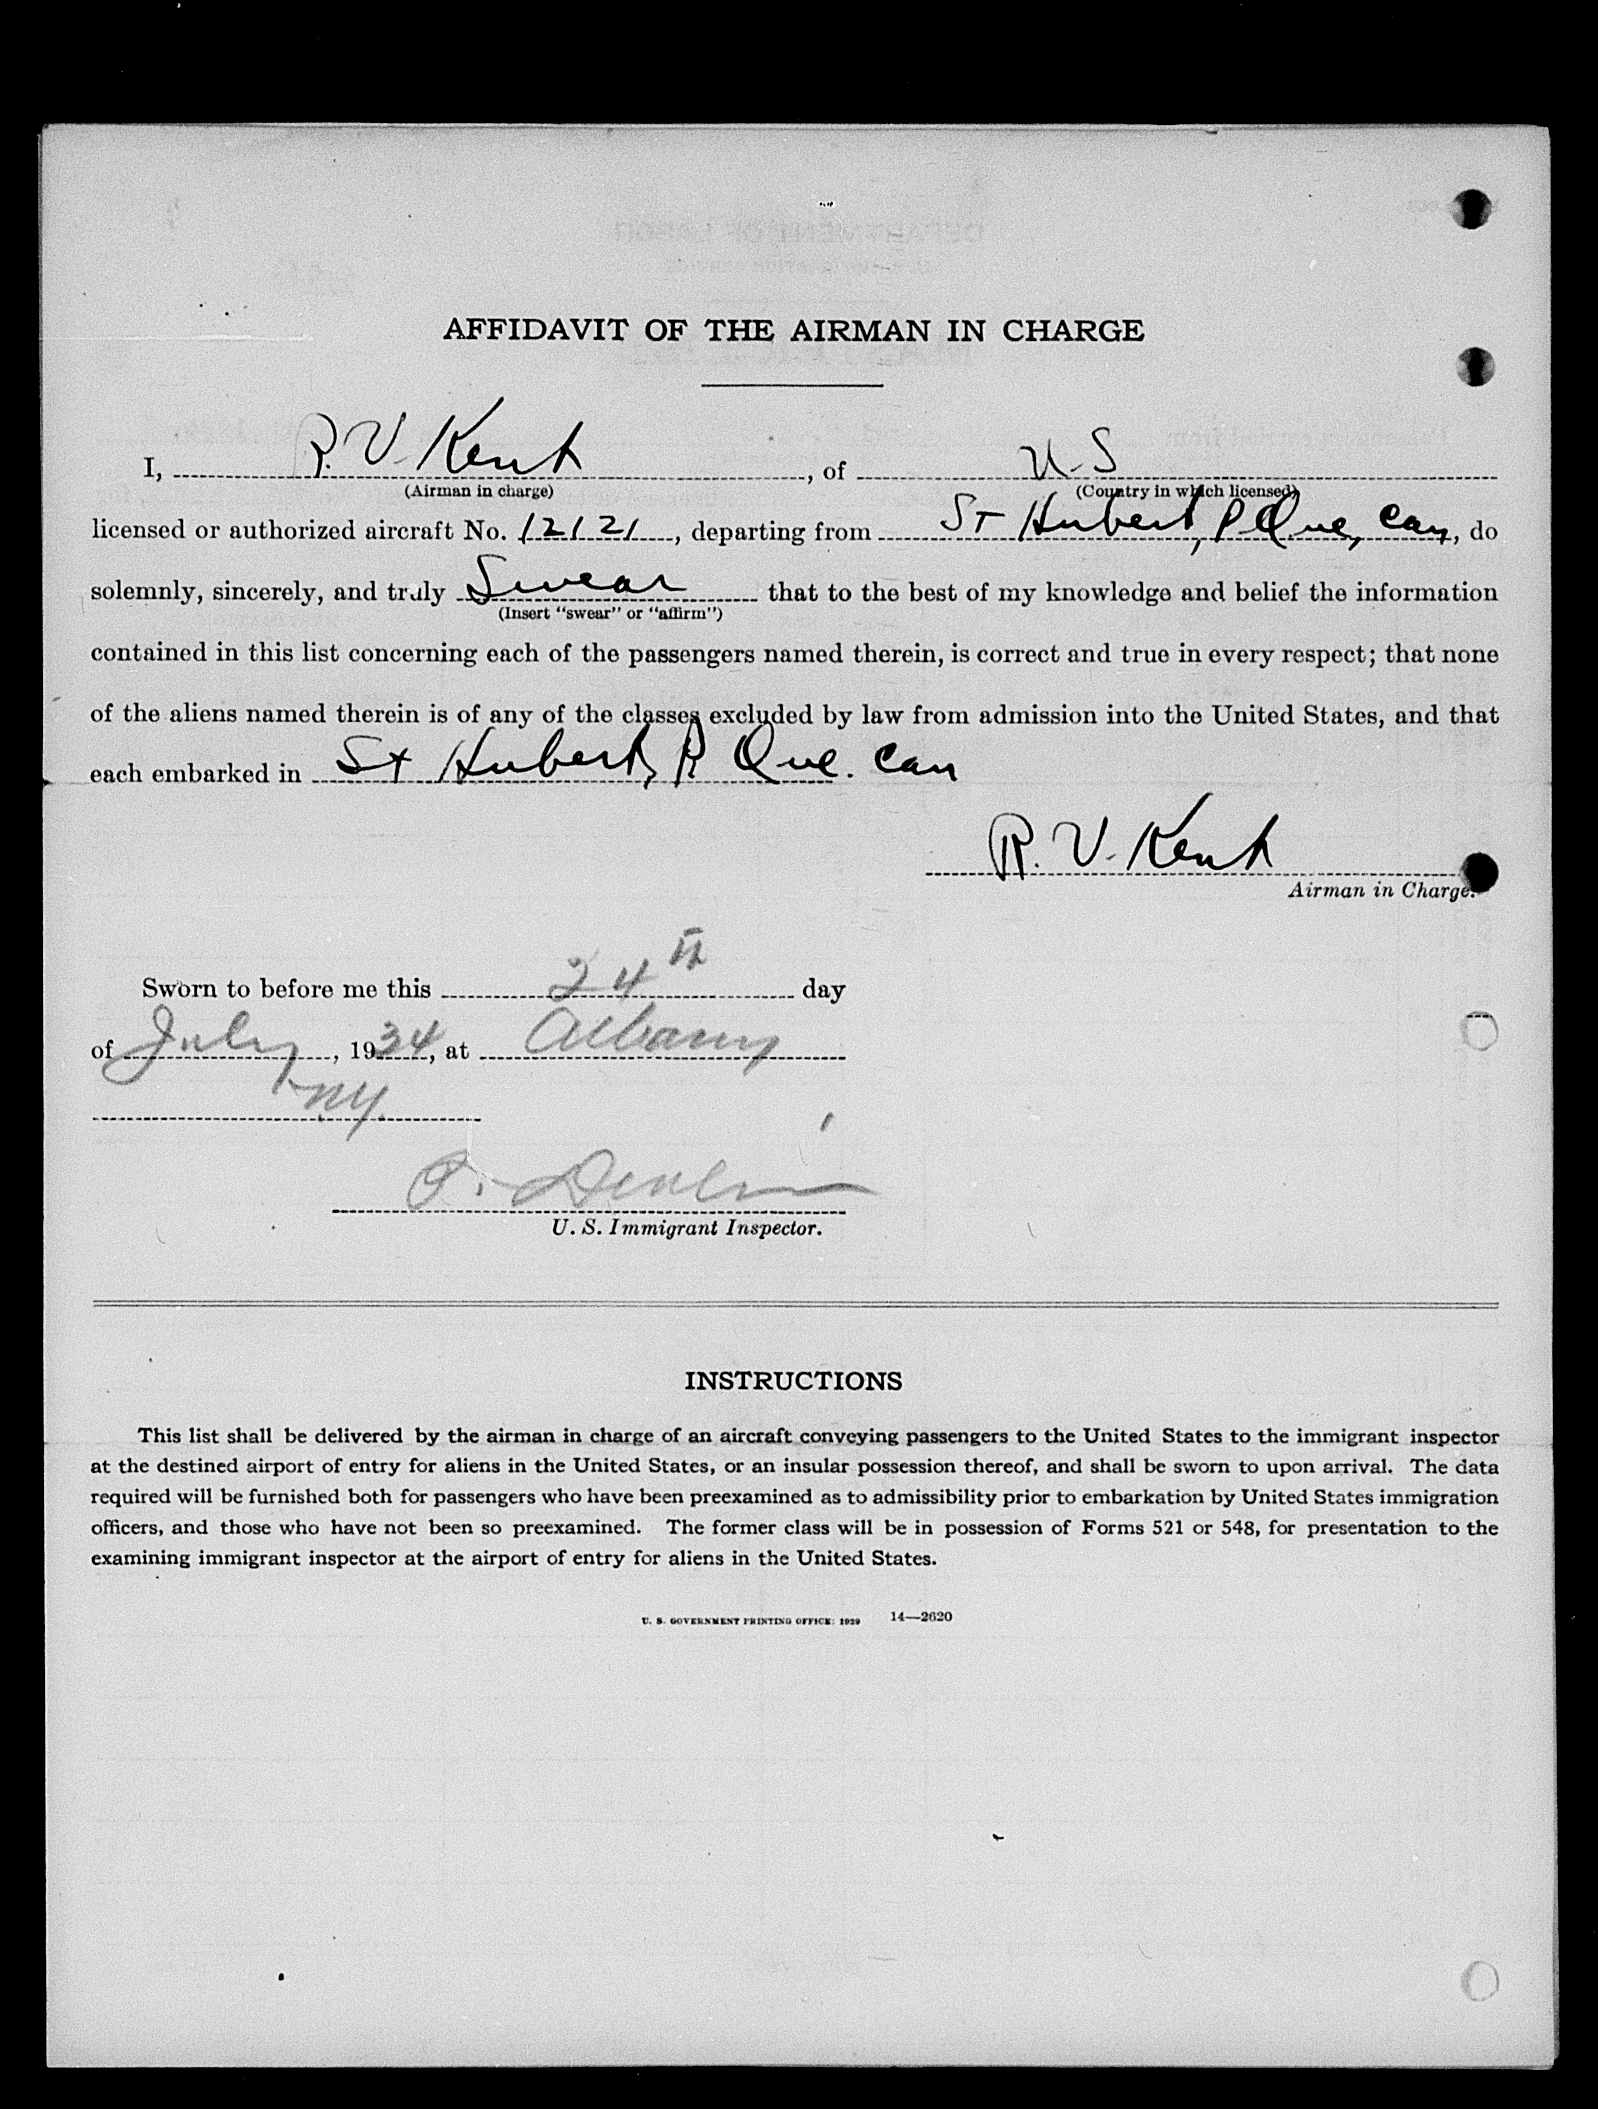 AFFIDAVIT OF THE AIRMAN IN CHARGE
I, R. V. Kent, of U.S
(Airman in charge) (Country in which licensed)
licensed or authorized aircraft No. 12121, departing from St Hubert, P Que, Can, do
solemnly, sincerely, and truly Swear that to the best of my knowledge and belief the information
(Insert "swear" or "affirm")
contained in this list concerning each of the passengers named therein, is correct and true in every respect; that none
of the aliens named therein is of any of the classes excluded by law from admission into the United States, and that
each embarked in St Hubert, P Que. Can
R. V. Kent
Airman in Charge.
Sworn to before me this 24th day
of July, 1934, at Albany
NY.
U. S. Immigrant Inspector.
INSTRUCTIONS
This list shall be delivered by the airman in charge of an aircraft conveying passengers to the United States to the immigrant inspector
at the destined airport of entry for aliens in the United States, or an insular possession thereof, and shall be sworn to upon arrival. The data
required will be furnished both for passengers who have been preexamined as to admissibility prior to embarkation by United States immigration
officers, and those who have not been so preexamined. The former class will be in possession of Forms 521 or 548, for presentation to the
examining immigrant inspector at the airport of entry for aliens in the United States.
U. S. GOVERNMENT PRINTING OFFICE: 1929 14—2620